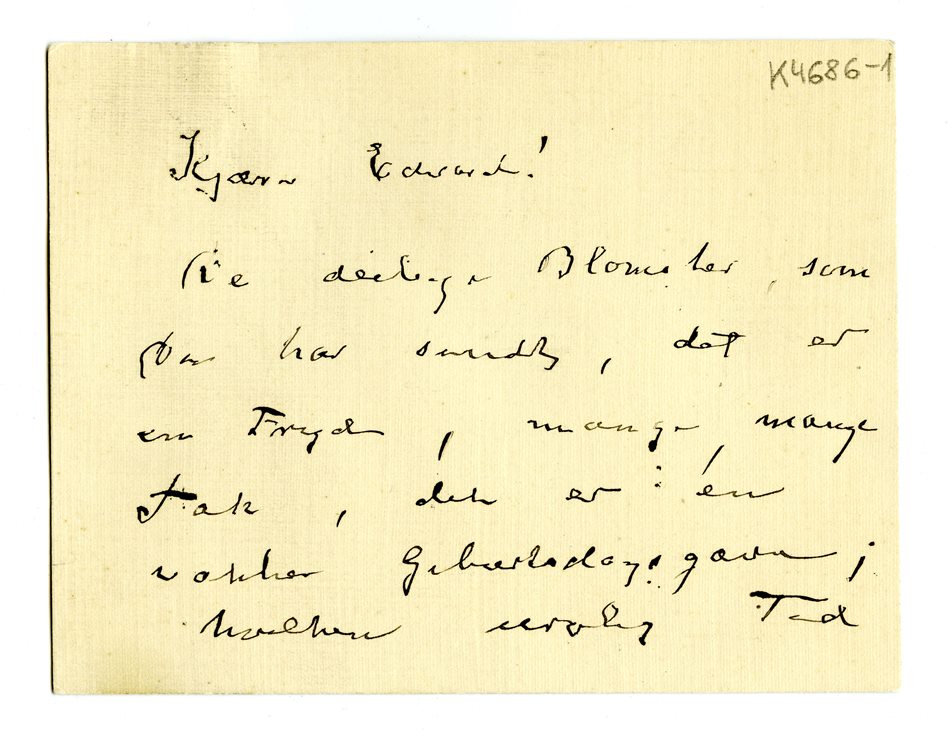 K4686-1
Kjære Edvard!
De deilige Blomster, som
Du har sendt, det er
en Fryd, mange, mange
Tak, det er én
vakker Geburtsdagsgave;
hvilken urolig Tid